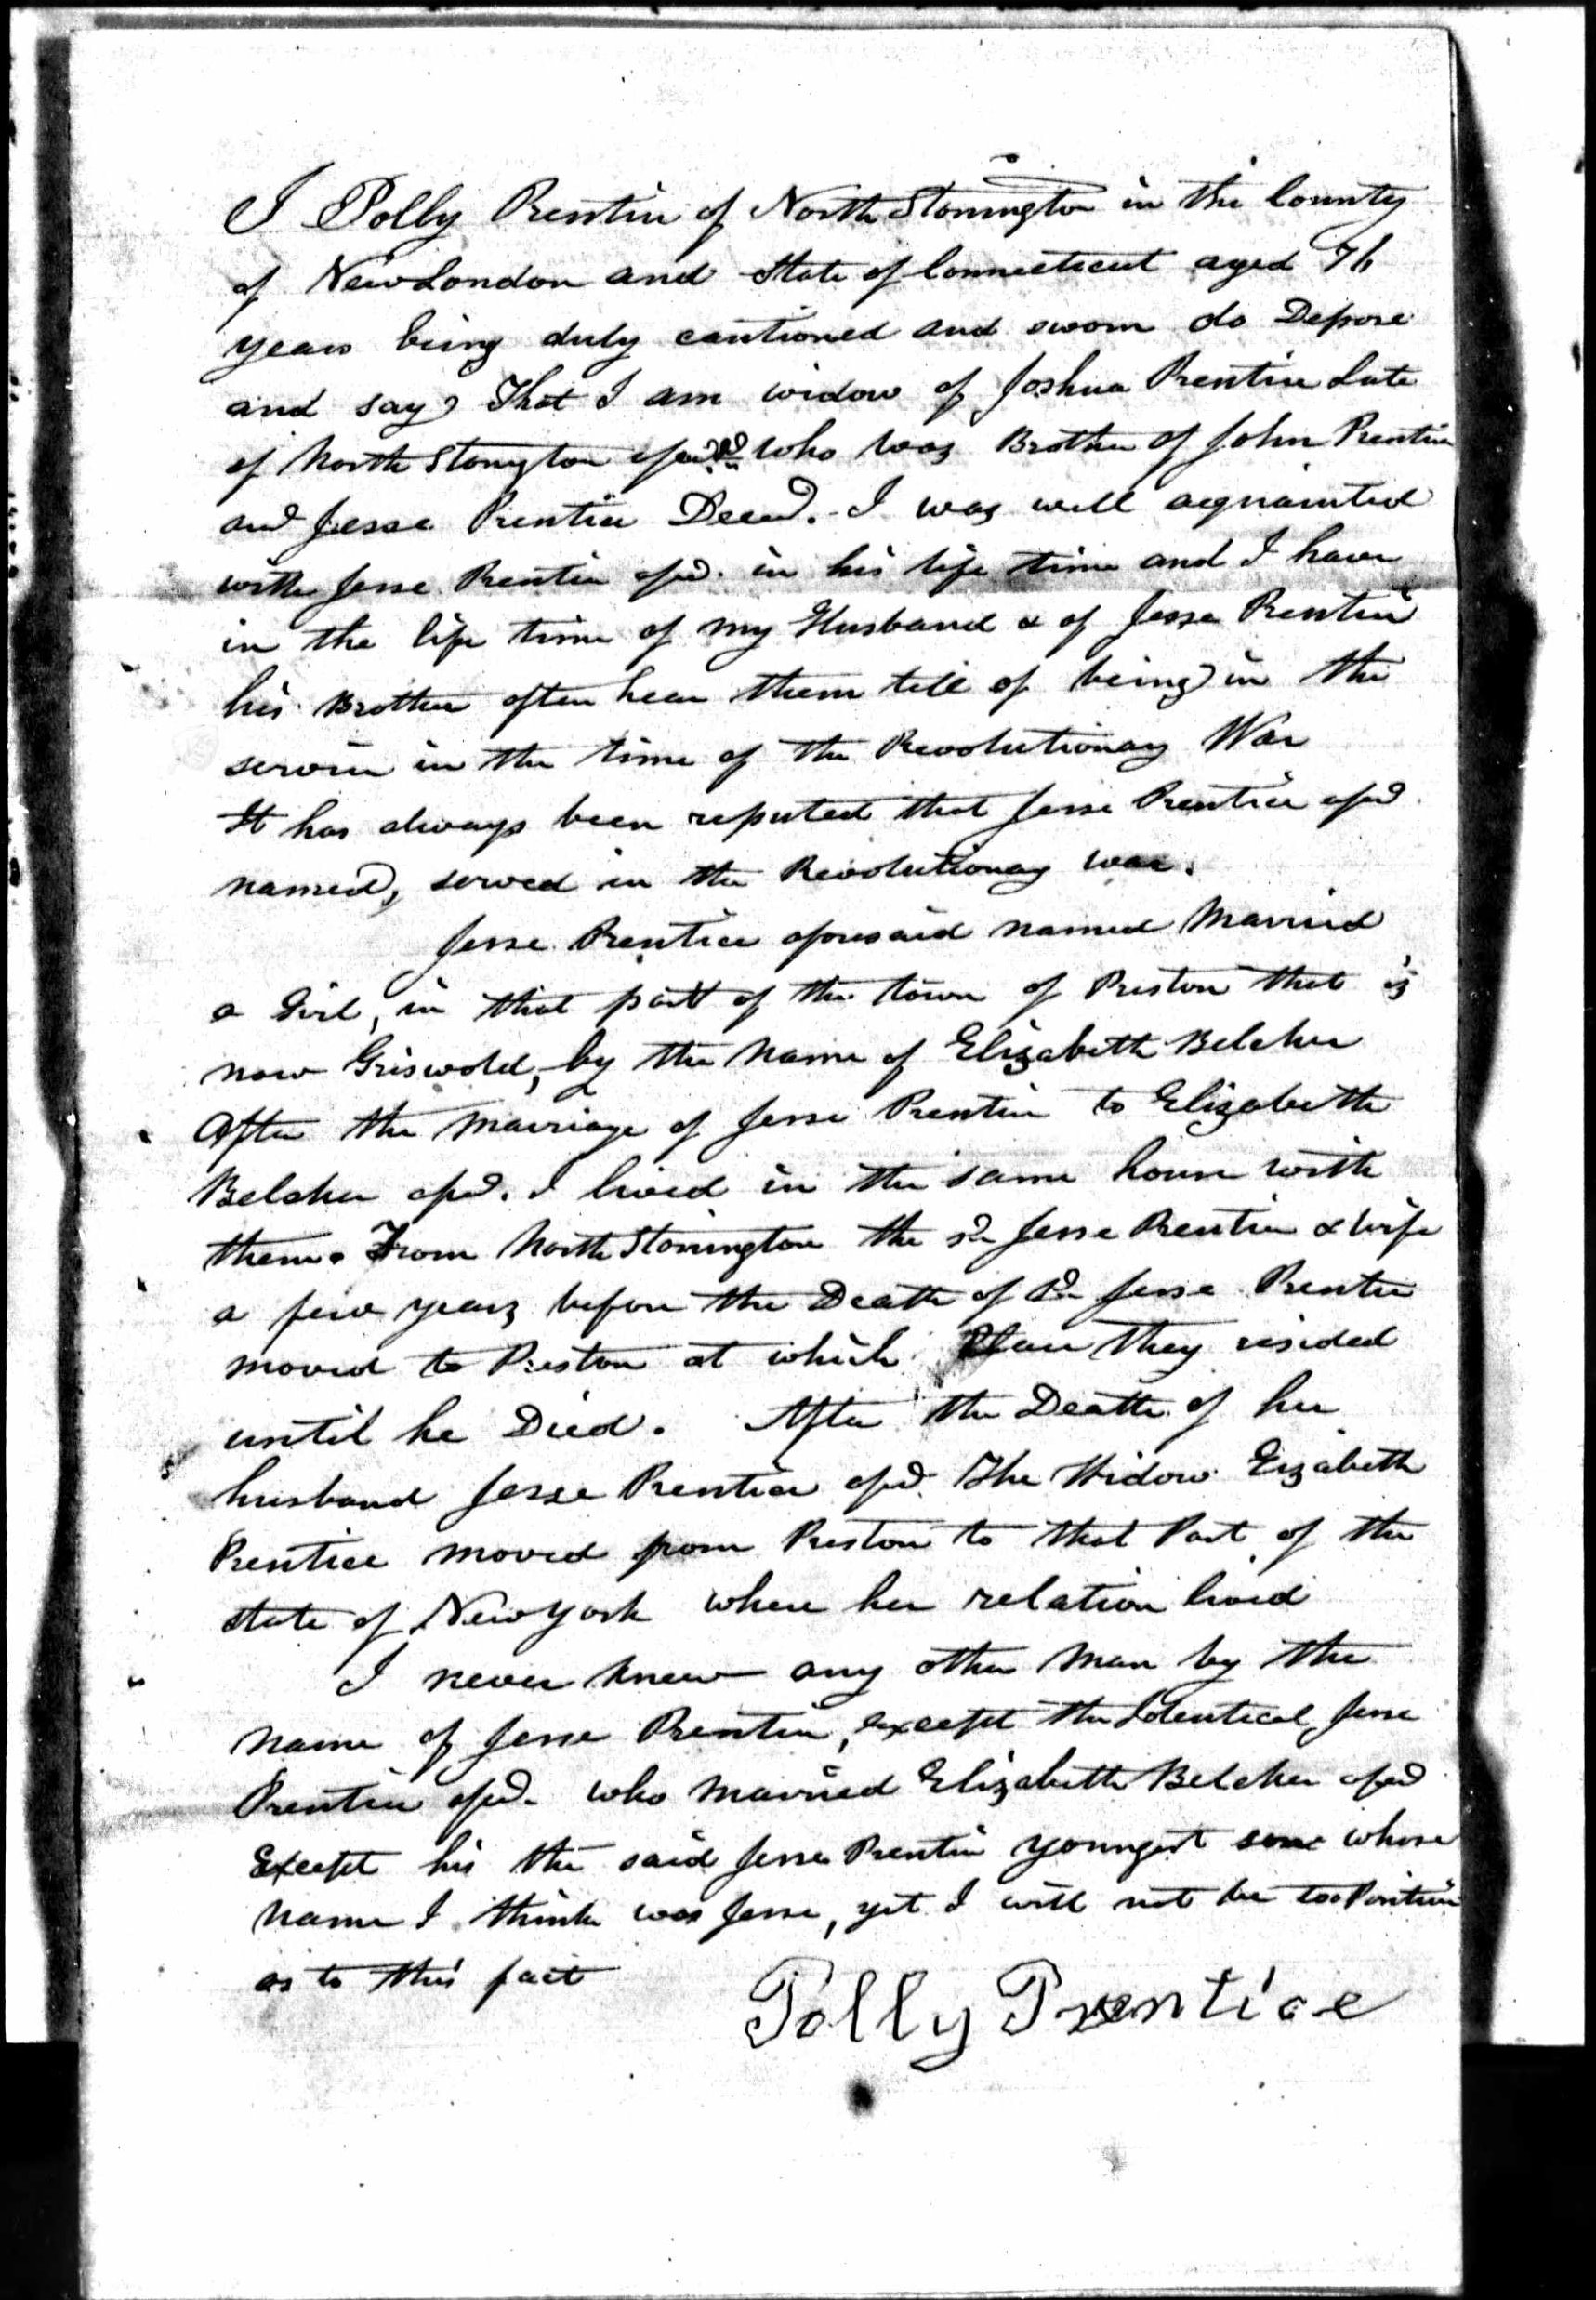 I Polly Prentice of North Stonington in the County
of New London and State of Connecticut aged 76
years being duly cautioned and sworn do Depose
and say That I am widow of Joshua Prentice Late
of North Stonington who was Brother of John Prentice
and Jesse Prentice Deced. I was well acquainted
with Jesse Prentice afsd. in his life time and I have
in the life time of my Husband & of Jesse Prentice
his Brother often hear them tell of being in the
service in the time of the Revolutionary War
It has always been reputed that Jesse Prentice afsd.
named, served in the Revolutionary war.
Jesse Prentice aforesaid named Married
a Girl, in that part of the town of Preston that is
now Griswold, by the Name of Elizabeth Belcher
After the Marriage of Jesse Prentice to Elizabeth
Belcher afsd. I lived in the same house with
them. From North Stonington the sd. Jesse Prentice & wife
a few years before the Death of sd. Jesse Prentice
moved to Preston at which Place they resided
until he Died. After the Death of her
husband Jesse Prentice afsd. The Widow Elzabeth
Prentice moved from Preston to that Part of the
state of New York where her relation lived
I never knew any other Man by the
Name of Jesse Prentice, except the Identical Jesse
Prentice afsd. who Married Elizabeth Belcher afsd
Except his the said Jesse Prentice youngest son whose
Name I think was Jesse, yet I will not be too Positive
as to this fact
Polly Prentice